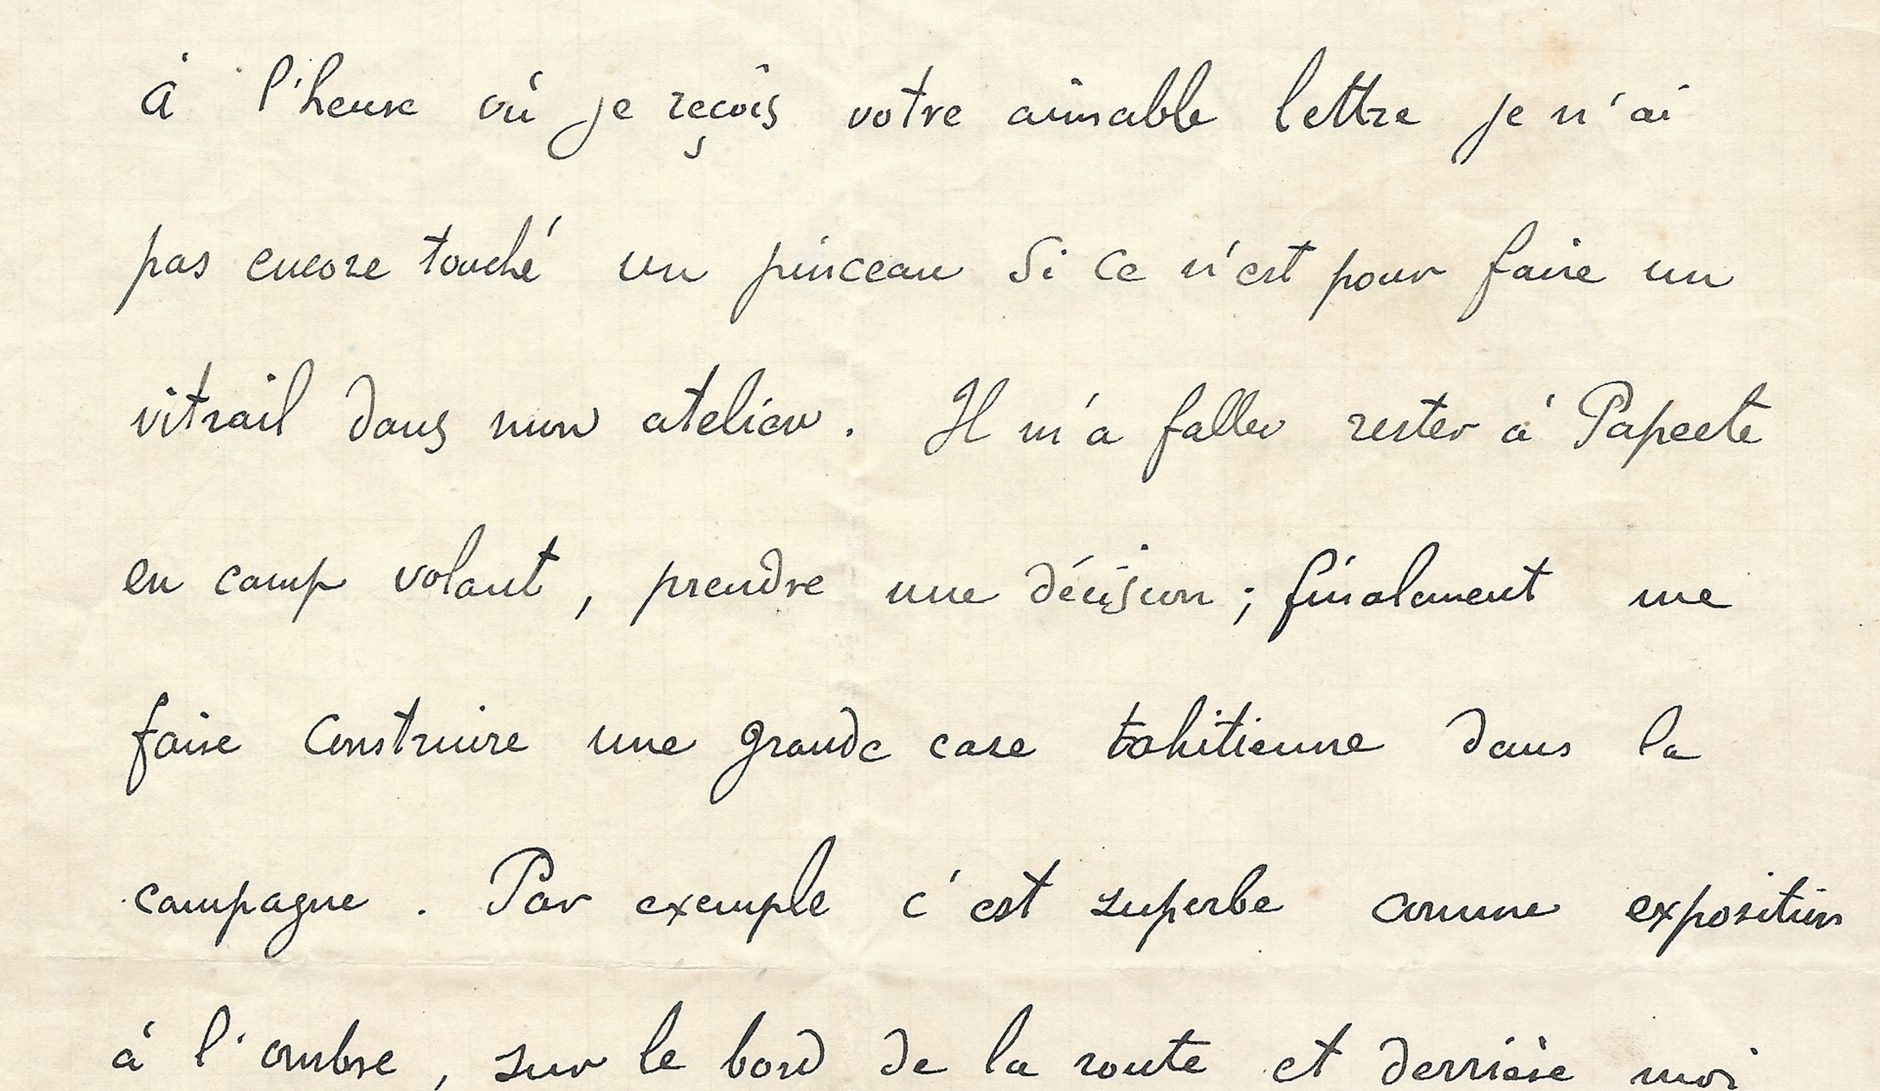 À l'heure où je reçois votre aimable lettre je n'ai
pas encore touché un pinceau si ce n'est pour faire un
vitrail dans mon atelier. Il m'a fallu rester à Papeete
en camp volant, prendre une décision ; finalement me
faire construire une grande case tahitienne dans la
campagne. Par exemple c'est superbe comme exposition
à l'ombre, sur le bord de la route et derrière moi